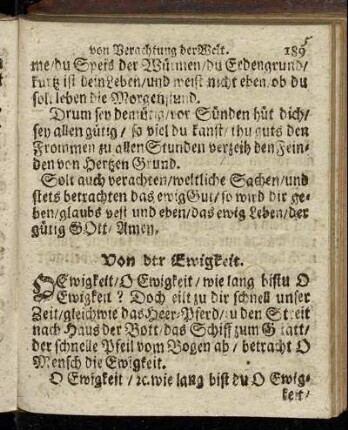 von Verachtung der Welt. 189
me/du Speis der Würmen/du Erdengrund/
kurtz ist dein Leben/und weist nicht eben/ob du
solt leben die Morgenstund.
Drum sey demütig/vor Sünden hüt dich/
sey allen gütig/ so viel du kanst/ thu guts den
Frommen zu allen Stunden verzeih den Fein-
den von Hertzen Grund.
Solt auch verachten/weltliche Sachen/und
stets betrachten das ewig Gut/ so wird dir ge-
ben/glaubs vest und eben/das ewig Leben/der
gütig GOtt/ Amen.
Von der Ewigkeit.
O Ewigkeit/ O Ewigkeit/ wie lang bistu O
Ewigkeit? Doch eilt zu dir schnell unser
Zeit/gleichwie das Heer-Pferd/zu den Streit
nach Haus der Bott/das Schiff zum Gstatt/
der schnelle Pfeil vom Bogen ab/ betracht O
Mensch die Ewigkeit.
O Ewigkeit/ ꝛc. wie lang bist du O Ewig-
keit/